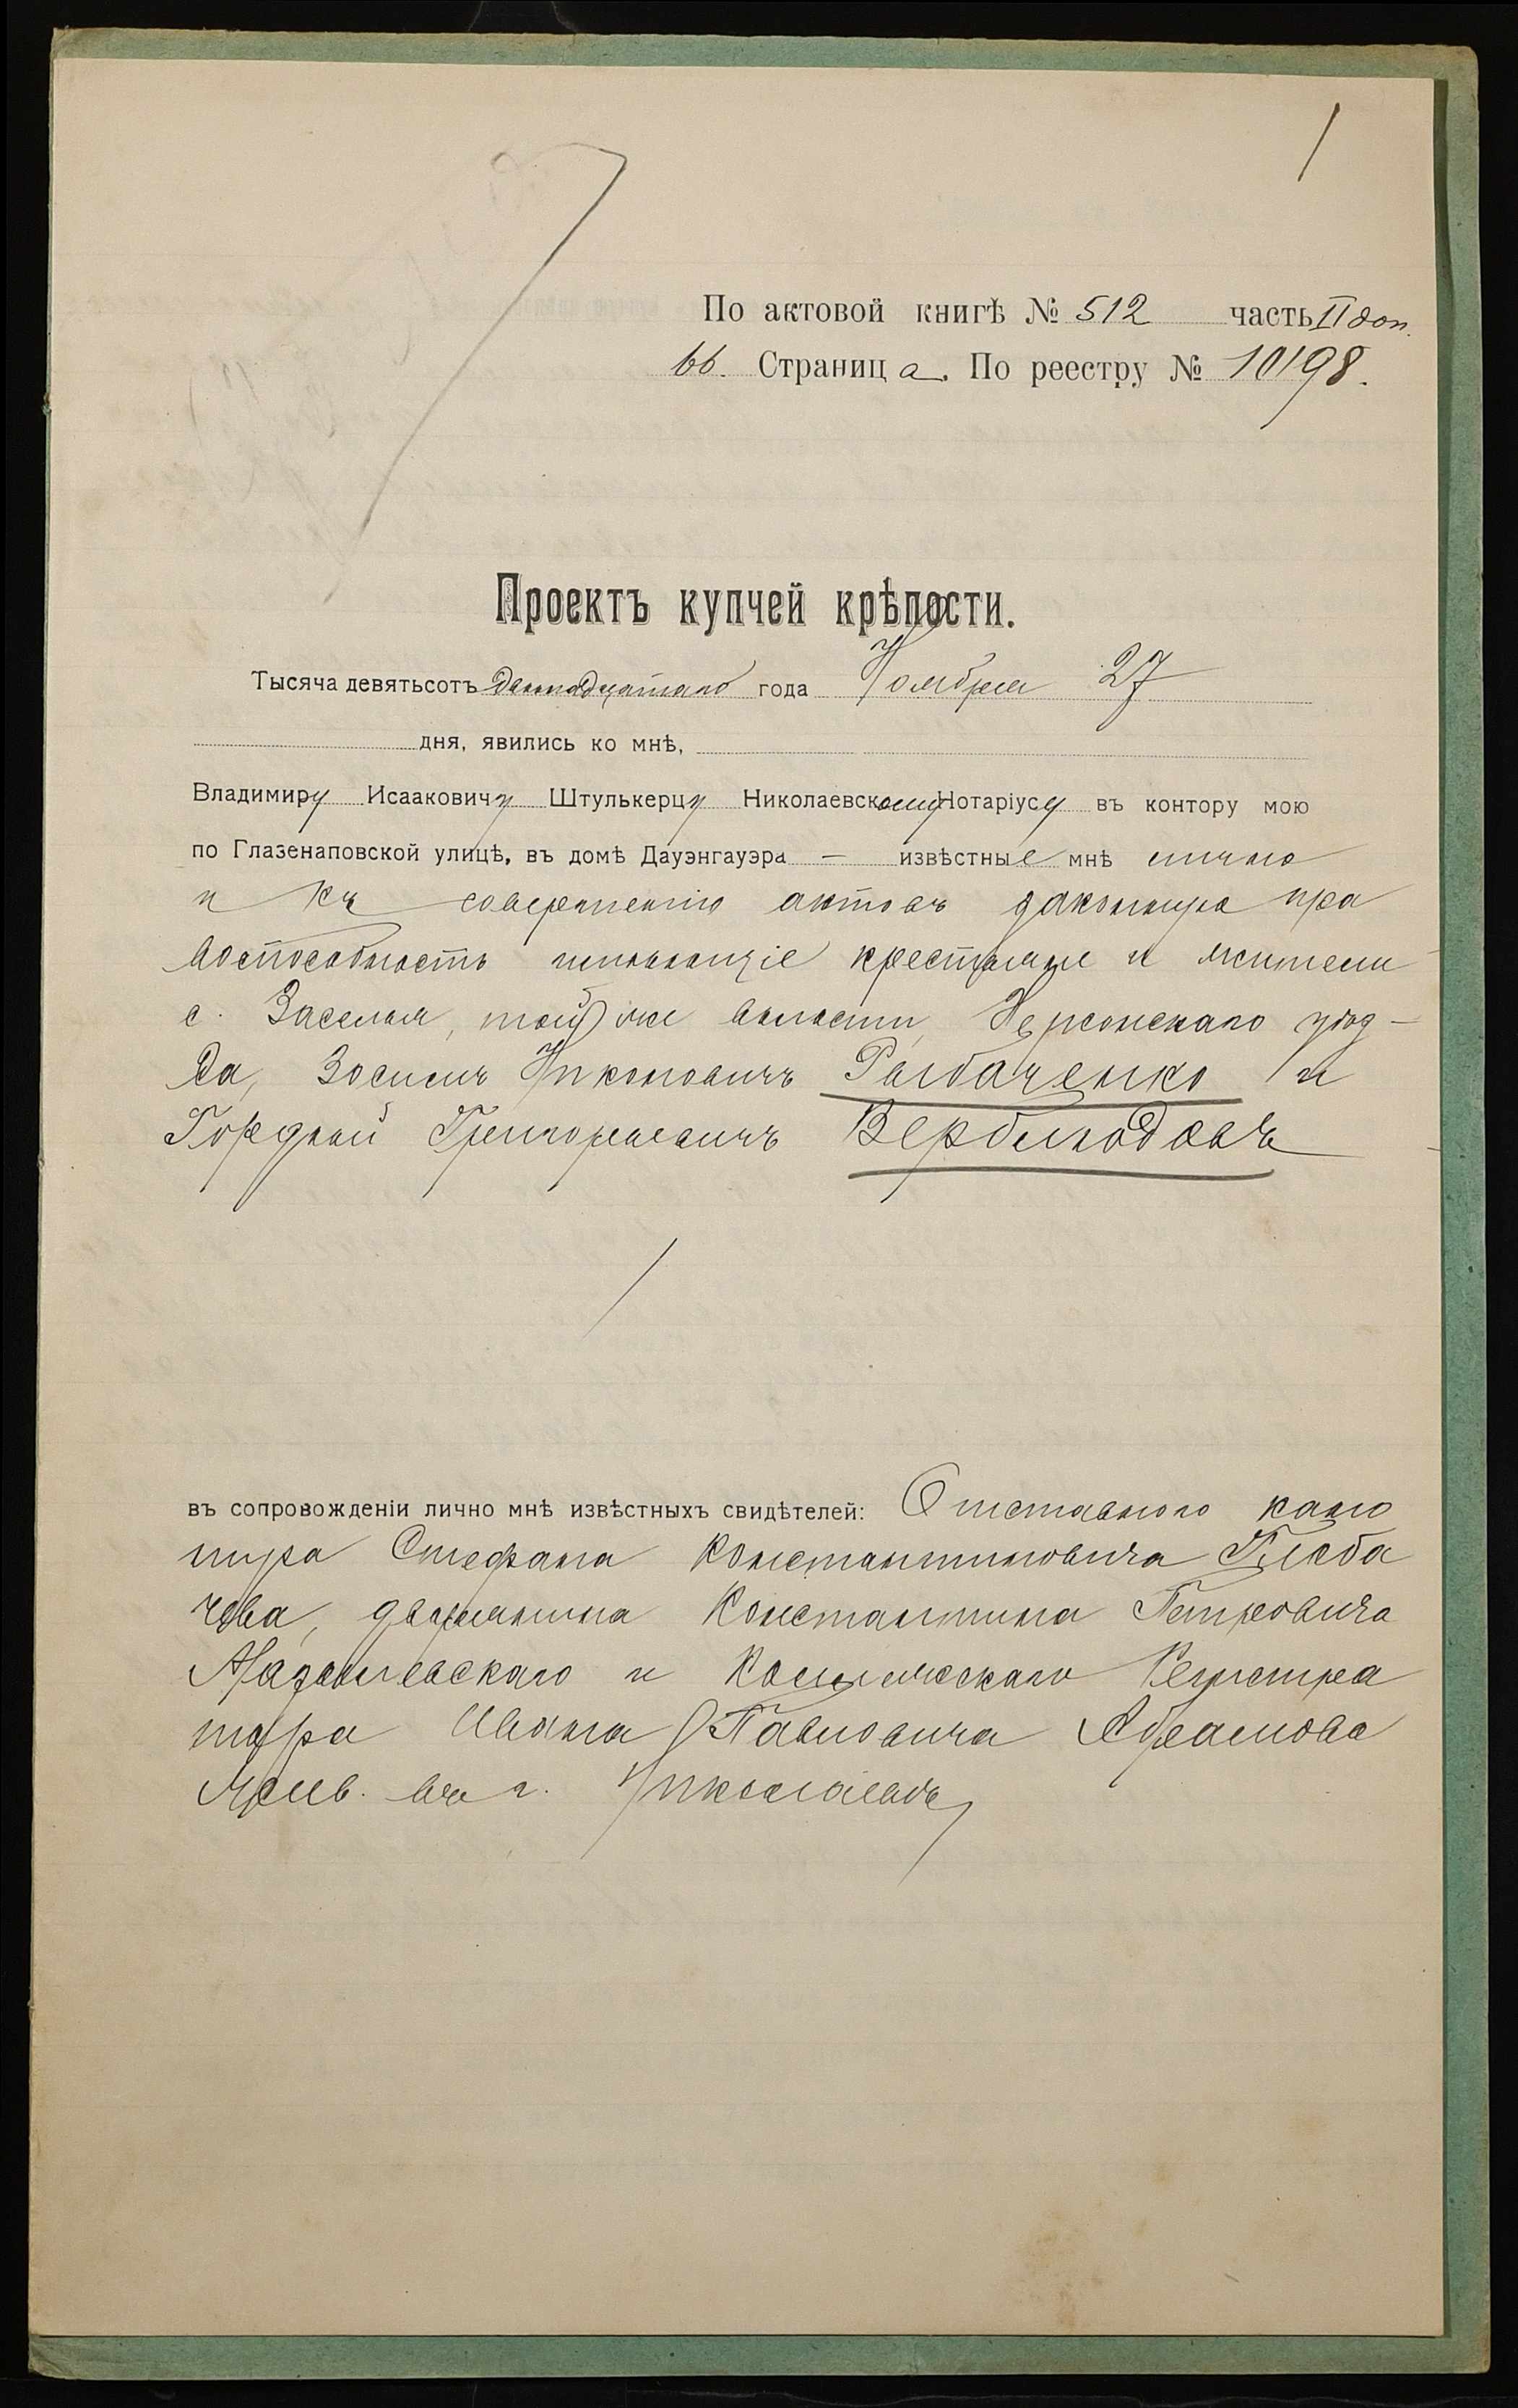 По актовой книгѣ № 512 часть II доп.
66. Страница. По реестру № 10198.
Проектъ купчей крѣпости.
Тысяча девятьсотъ двѣнадцатаго года Ноября 27
дня, явились ко мнѣ,
Владимиру Исааковичу Штулькерцу Николаевскому Нотаріусу въ контору мою
по Глазенаповской улицѣ, въ домѣ Дауэнгауэра — извѣстные мнѣ лично
и къ совершенію актовъ законную пра
воспособность имѣющіе крестьяне и жители
с. Заселья, той же волости, Херсонскаго уѣз-
да, Зосимъ Никоновичъ Рыбаченко и
Гордѣй Григорьевичъ Вербиводовъ
въ сопровожденіи лично мнѣ извѣстныхъ свидѣтелей: Отставного кано
нира Стефана Константиновича Глоба
чева, дворянина Константина Петровича
и Коллежскаго Регистра
тора Ивана Павловича Абрамова
жив. въ г. Николаевѣ,